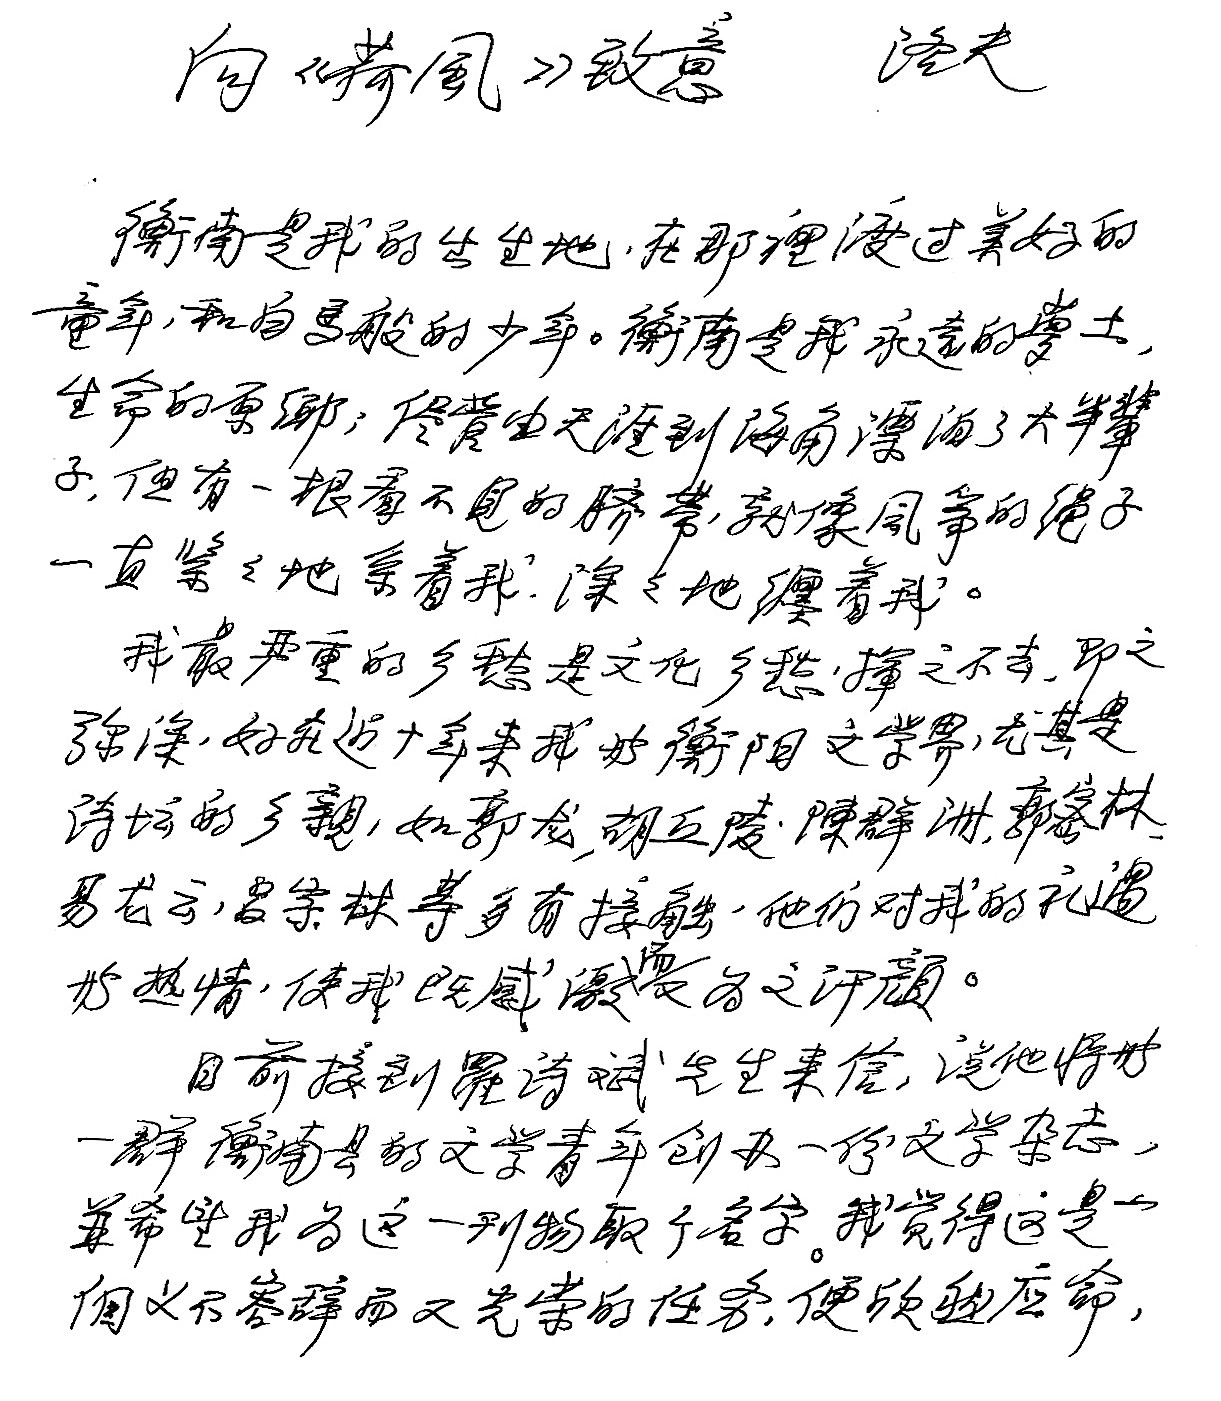 向《荷風》致意 洛夫
衡南是我的出生地，在那裡渡过美好的
童年，和白馬般的少年。衡南是我永遠的夢土，
生命的原鄉；侭管由天涯到海角漂泊了大半輩
子，但有一根看不見的臍帶，就像風箏的繩子
一直紧々地系着我，深々地纏着我。
我最严重的乡愁是文化乡愁，揮之不去，即之
弥深，好在近十年来我与衡阳文学界，尤其是
诗坛的乡親，如郭龙，胡丘陵，陳群洲，郭密林、
易龙云，吕宗林等多有接触，他们对我的礼遇
与热情，使我既感激而又为之汗顏。
目前接到羅诗斌先生来信，说他将与
一群衡南县的文学青年创办一份文学杂志，
并希望我为这一刊物取个名字。我觉得这是一
個义不容辞而又光荣的任务，便欣然应命，